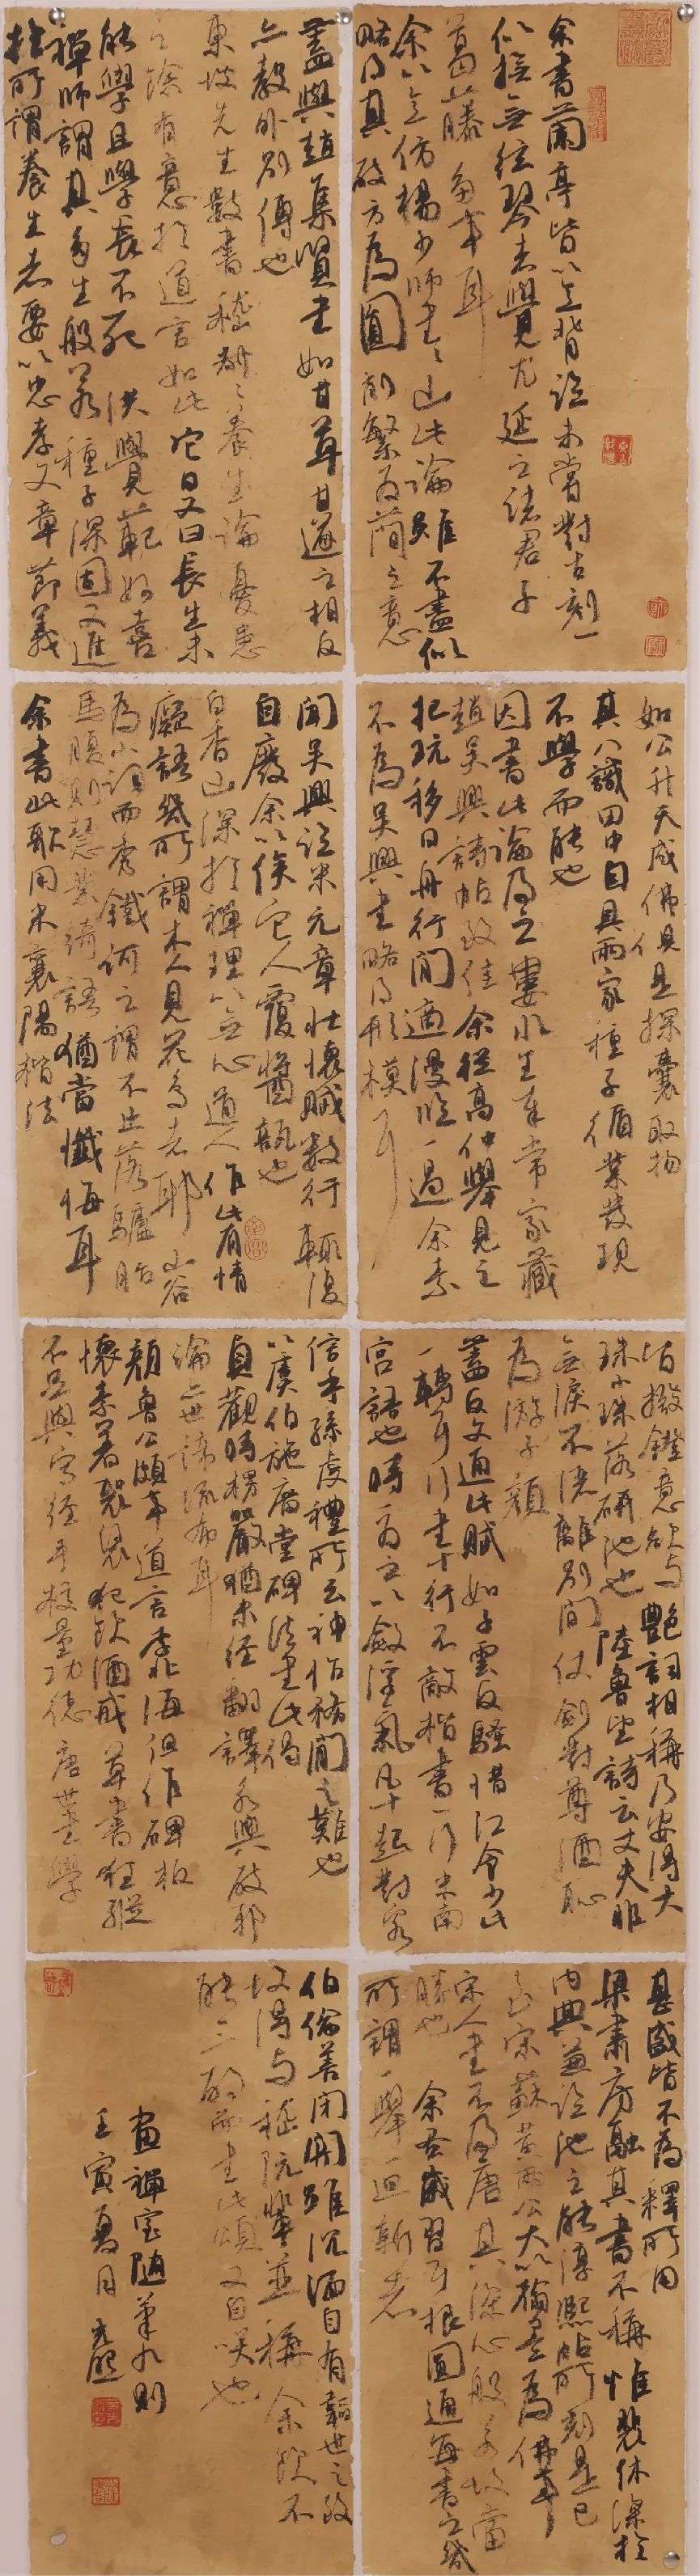 余書蘭亭皆以意背臨未嘗對古刻一
似撫無弦琴者覺尤延之諸君子
葛藤多事耳
余以意仿楊少師書書山此論雖不盡似
略得其破方為圓削繁為簡之意
蓋與趙集賢書如甘草甘遂之相反
亦教外別傳也
東坡先生數書嵇叔夜養生論憂患
之餘有意於道言如此它日又曰長生未
能學且學長不死 洪覺範妙喜
禪師謂其多生般若種子深固又進
於所謂養生者要以忠孝文章節義
如公升天成佛俱是探囊取物
其八識田中自具兩家種子循業發現
不學而能也
因書此論及之 婁水王奉常家藏
趙吳興詩帖致佳余從高仲舉見之
把玩移日舟行閒適漫臨一過余素
不為吳興書略得形模耳
聞吳興臨米元章壯懷賦數行輒復
自廢余以俟它人覆醬瓿也
白香山深於禪理以無心道人作此有情
癡語幾所謂木人見花鳥者耶 山谷
為小詞而秀鐵訶之謂不止落驢胎
馬腹則慧業綺語猶當懺悔耳
余書此歌用米襄陽楷法
皆撥鐙意欲與艷詞相稱乃安得大
珠小珠落研池也 陸魯望詩云丈夫非
無淚不洒離別間仗劍對尊酒恥
為游子顏
蓋反文通此賦如子雲反騷惜江令少此
一轉耳行書十行不敵楷書一行米南
宮語也時一為之以斂浮氣凡十起對客
信手孫虔禮所云神怡務閒之難也
以虞伯施廟堂碑法書此偈
貞觀時楞嚴猶未經翻譯永興破邪
論亦世諦流布耳
顏魯公頗事道言家誨但作碑板
懷素著袈裟犯飲酒戒草書狂縱
不足與寫經手校量功德 唐世書學
甚盛皆不為釋所用
梁肅房融其書不稱惟裴休深於
內典兼臨池之能淳熙帖所刻是已
至宋蘇黃兩公大以翰墨為佛事
宋人書不及唐其深心般若故當
勝也 余吾歲習耳根圓通每書之幾
所謂一舉一迴新者
伯倫善閉關雖沉湎自有韜世之致
故得與嵇阮輩並稱余飲不
能三酌而書此頌又自笑也
畫禪室隨筆九則
壬寅夏月